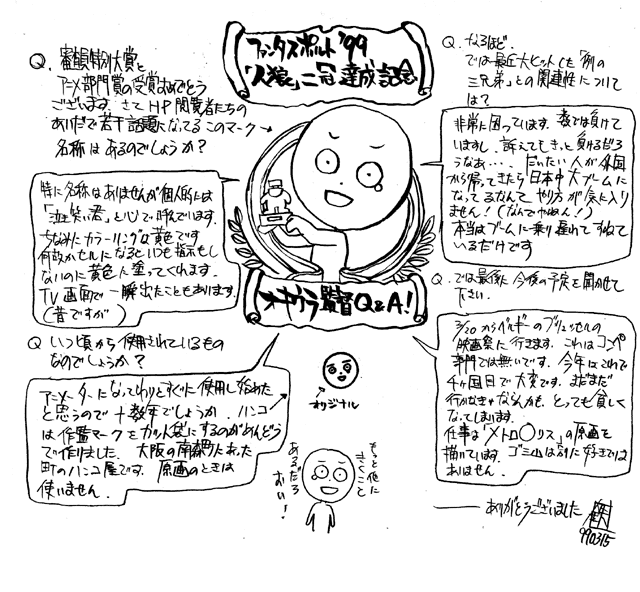 ファンタスポルト'99
「人狼」二冠達成記念
Q. 審査員特別大賞と
アニメ部門賞の受賞おめでとう
ございます。さてHP閲覧者たちの
あいだで若干話題になってるこのマーク
名称はあるのでしょうか?
特に名称はありませんが個人的には
「泣き笑い君」と心で呼んでいます。
ちなみにカラーリングは黄色です
何故かセルになるといつも指示もし
ないのに黄色に塗ってくれます。
TV画面で一瞬出たこともあります。
(昔ですが)
オキウラ監督Q&A!
Q いつ頃から使用されているもの
なのでしょうか?
アニメーターになってわりとすぐに使用し始めた
と思うので十数年でしょうか。ハンコ
は作監マークをカット袋にするのがめんどう
で作りました。大阪の南森町にあった
町のハンコ屋です。原画のときは
使いません。
オリジナル
もっと他に
きくこと
あるだろ
おい!
Q. なるほど。
では最近大ヒットした「例の
三兄弟」との関連性について
は?
非常に困っています。数では負けて
ますし、訴えてもきっと負けるだろ
うなあ・・・。だいたい人が外国
から帰ってきたら日本中大ブームに
なってるなんてやり方が気に入り
ません!(なんでやねん!)
本当はブームに乗り遅れてすねて
いるだけです
Q. では最後に今後の予定を聞かせて
下さい。
3/20からベルギーのブリュッセルの
映画祭に行きます。これはコンペ
専門では無いです。今年はこれで
4ヶ国目で大変です。まだまだ
行かなきゃならんかも。とっても貧しく
なってしまいます。
仕事は「メトロ〇リス」の原画を
描いています。ゴミ山は別に好きでは
ありません。
―― ありがとうございました
990315